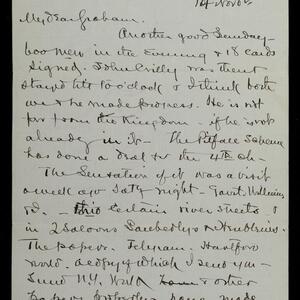 14 Nov
My dear Graham.
Another good Sunday
600 men in the Evening & 18 cards
signed. John Crilly was there
stayed till 10 o'clock & I think both
we & he made progress. He is not
far from the Kingdom - if he is not
already in it - The Palace Scheme
has done a deal for the 4th Ch -
The Sensation of it was a visit
a week ago Saty night - Gavit, Williams
& I - thro certain river streets &
in 2 Saloons
The papers. Telegram. Hartford
World. a copy of which I send you -
Some N.Y. & other
papers probably have made